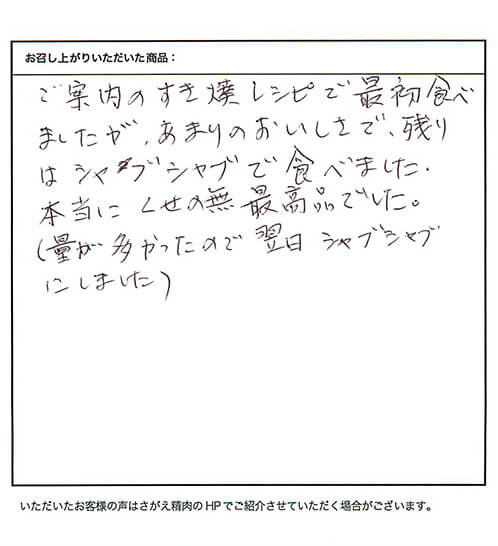 お召し上がりいただいた商品：
ご案内のすき焼レシピで最初食べ
ましたが、あまりのおいしさで、残り
はシャブシャブで食べました.
本当にくせの無最高品でした。
(量が多かったので翌日シャブシャブ
にしました)
いただいたお客様の声はさがえ精肉のHPでご紹介させていただく場合がございます。